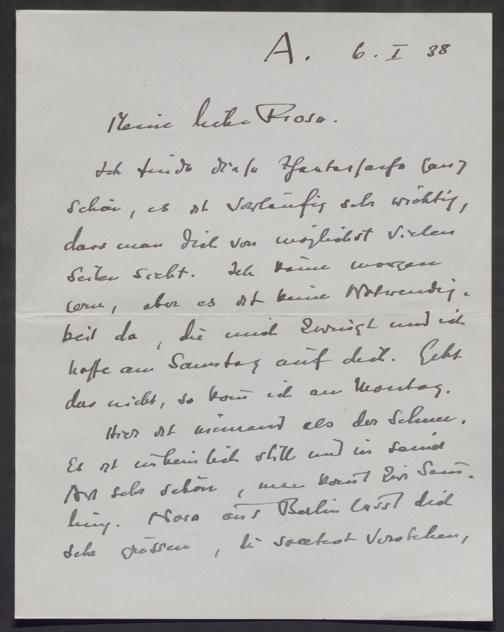 A. 6. I 38
Meine liebe Rosa.
Ich finde diese ganz
schön, es ist vorläufig sehr wichtig,
dass man Dich von möglichst vielen
Seiten sieht. Ich käme morgen
gern, aber es ist keine Notwendig-
keit da, die mich zwingt und ich
hoffe am Samstag auf dich. Geht
das nicht, so kom ich am Montag.
Hier ist niemand als der Schnee.
Es ist unheimlich still und in seiner
Art sehr schön, man kommt zur Samm-
lung. Nora aus Berlin lässt dich
sehr grüssen, sie verstehen,